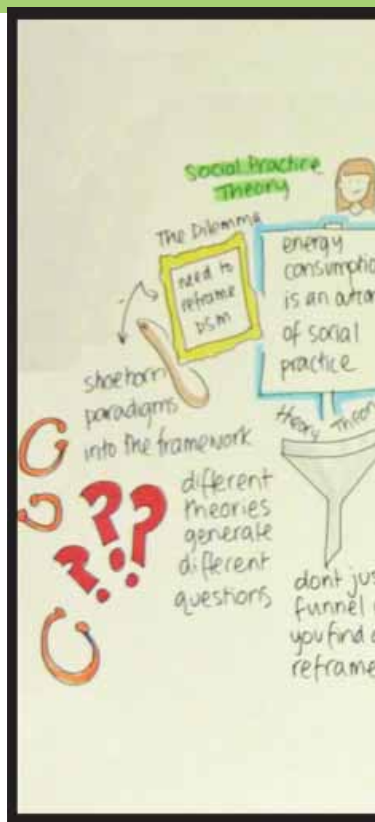 Social Practice
Theory
The Dilemma
need to
reframe
DSM
energy
consumptio
is an outcom
of social
practice
shoehorn
paradigms
into the framework
theory theory
???
different
theories
generate
different
questions
dont jus
funnel
you find
reframe